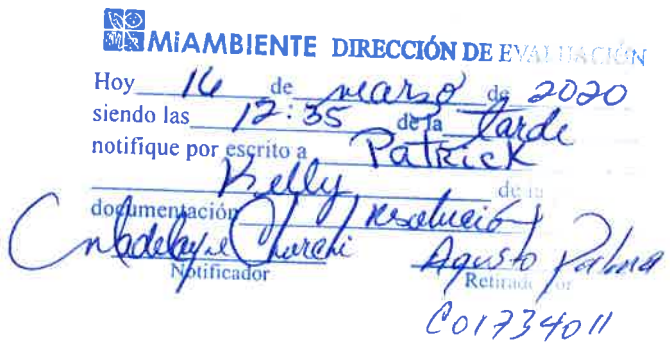 MiAMBIENTE DIRECCIÓN DE EVALUACIÓN
Hoy 16 de marzo de 2020
siendo las 12:35 de la tarde
notifique por escrito a Patrick
Kelly de la
documentación resolución
Notificador Retirado por
Agusto Palma
C01734011